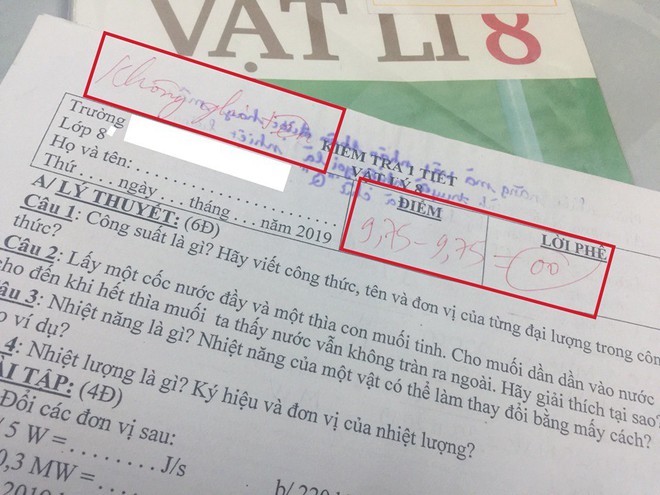 VẬT LÍ 8
Không
KIỂM TRA 1 TIẾT
VẬT LÝ 8
Trường
Lớp 8
Họ và tên:
Thứ . . . . ngày . . . . tháng . . . . năm 2019
ĐIỂM
LỜI PHÊ
9,75 – 9,75 = 00
A/ LÝ THUYẾT: (6Đ)
Câu 1: Công suất là gì? Hãy viết công thức, tên và đơn vị của từng đại lượng trong côn
thức?
Câu 2: Lấy một cốc nước đầy và một thìa con muối tinh. Cho muối dần dần vào nước
cho đến khi hết thìa muối ta thấy nước vẫn không tràn ra ngoài. Hãy giải thích tại sao?
âu 3: Nhiệt năng là gì? Nhiệt năng của một vật có thể làm thay đổi bằng mấy cách?
o ví dụ?
4: Nhiệt lượng là gì? Ký hiệu và đơn vị của nhiệt lượng?
ÀI TẬP: (4Đ)
Đổi các đơn vị sau:
5 W = . . . . . . . . J/s
0,3 MW = . . . . . . .
b/ 220